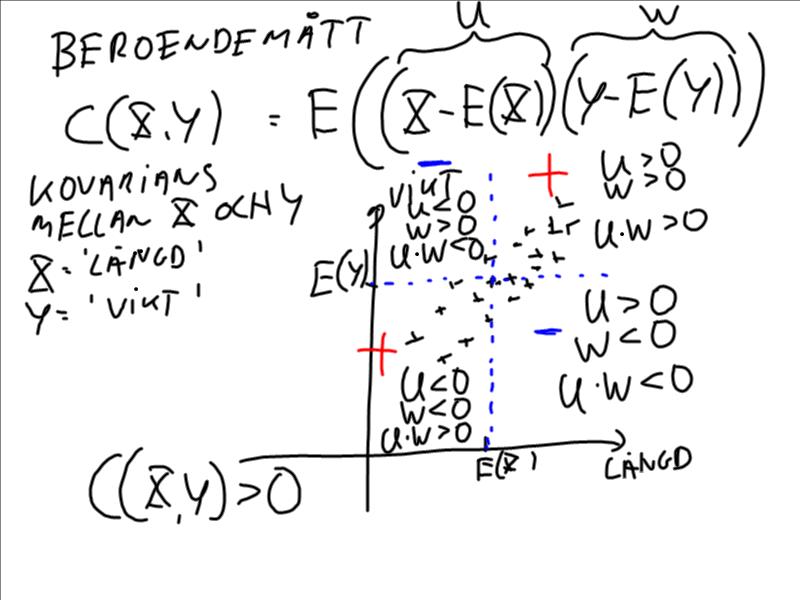 BEROENDEMÅTT
U W
C(X,Y) = E((X-E(X))(Y-E(Y)))
KOVARIANS
MELLAN X OCH Y
X = 'LÄNGD'
Y = 'VIKT'
VIKT
U<0
W>0
U·W<0
+
U>0
W>0
U·W>0
E(Y)
-
U>0
W<0
U·W<0
+
U<0
W<0
U·W>0
E(X)
LÄNGD
C(X,Y)>0